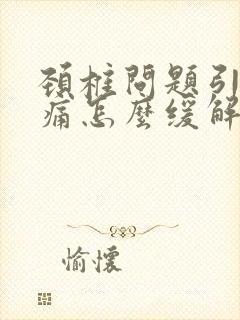 頚椎問題引
痛怎麼緩解
愉懷